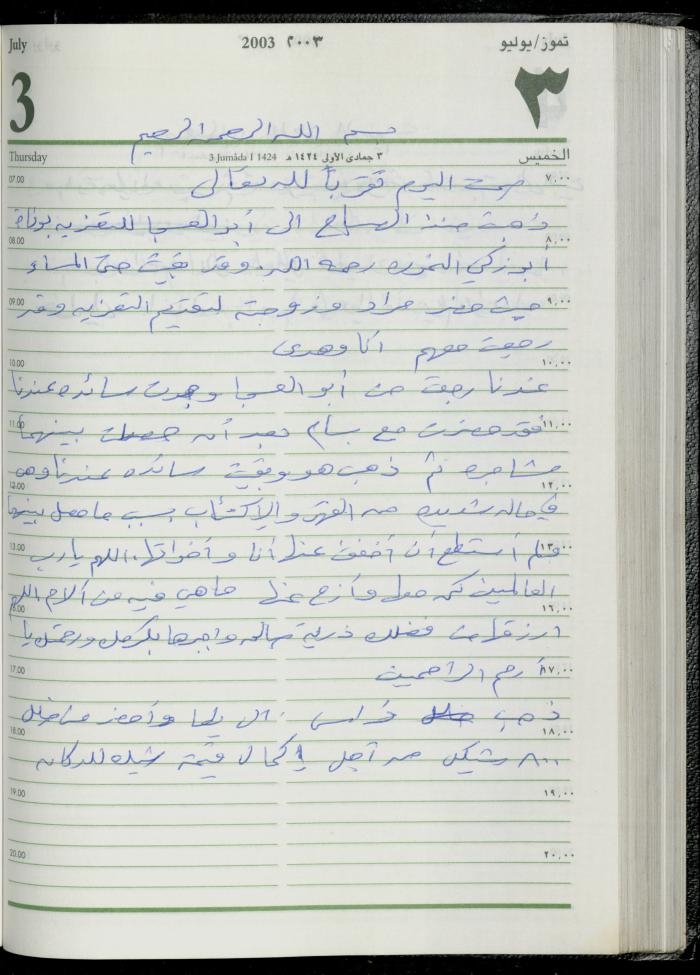 July 2003 ٢٠٠٣ تموز/يوليو
3 ٣
بسم الله الرحمن الرحيم
Thursday 3 Jumâda I 1424 ٣ جمادى الأولى ١٤٢٤ هـ الخميس
07.00 صمت اليوم تقرباً لله تعالى ٧,٠٠
ذهبت منذ الصباح الى أبو العسجا للتعزيه بوفاة
08.00 ٨,٠٠
أبو زكي رحمه الله. وقد بقيت حتى المساء
09.00 حيث حضر مراد وزوجته لتقديم التعزيه وقد ٩,٠٠
رجعت معهم أنا وهدى
10.00 ١٠,٠٠
عندنا رجعت من أبو العسجا وجدت سائده عندنا
11.00 فقد حضرت مع بسام بعد أن حصلت بينهما ١١,٠٠
مشاجره ثم ذهب هو وبقيت سائده عندنا وهي
12.00 ١٢,٠٠
في حاله شديده من القهر والإكتئاب بسبب ما حصل بينهما
13.00 فلم أستطع أن أخفف عنها أنا وأخواتها. اللهم يارب ١٣,٠٠
العالمين همها وأزح عنها ماهي فيه من آلام اللهم
16.00 ١٦,٠٠
ارزقها من فضلك ذرية صالحه واجبرها بكرمك ورحمتك يا
17.00 أرحم الراحمين ١٧,٠٠
ذهب الى يطا وأحضر من
18.00 ١٨,٠٠
٨٠٠ شيكل من أجل إكمال قيمة للدكان
19.00 ١٩,٠٠
20.00 ٢٠,٠٠